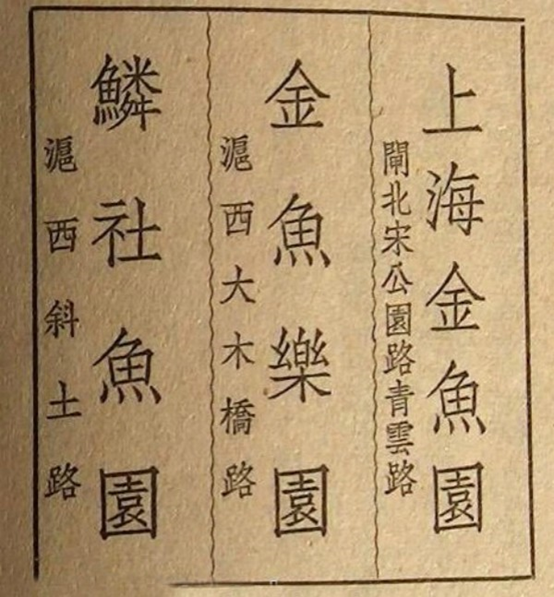 上海金魚園
閘北宋公園路青雲路
金魚樂園
滬西大木橋路
鱗社魚園
滬西斜土路